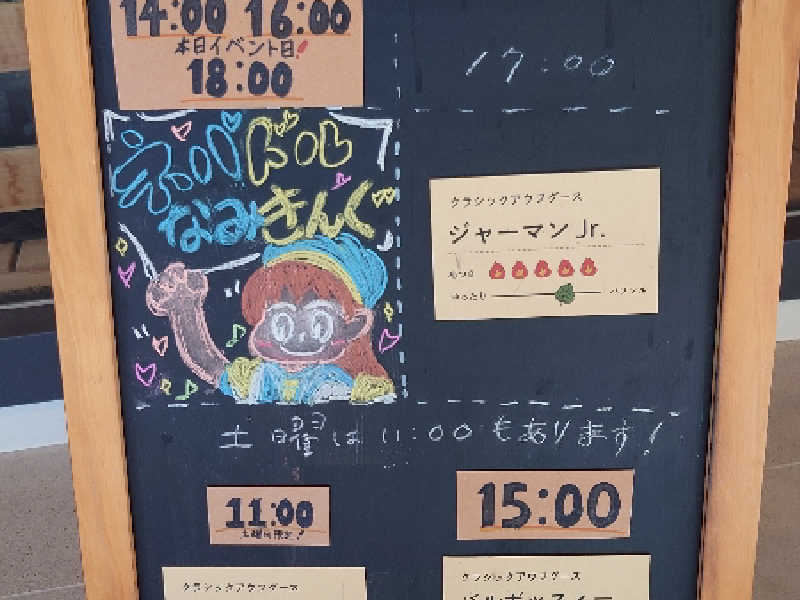 14:00 16:00
本日イベント日!
18:00
17:00
ネババドル
なみきんぐ
クラシックアウフグース
ジャーマンJr.
あつさ
ゆったり
パワフル
土曜は11:00もあります!
11:00
土曜日限定!
15:00
クラシックアウフグース
クラシックアウフグース